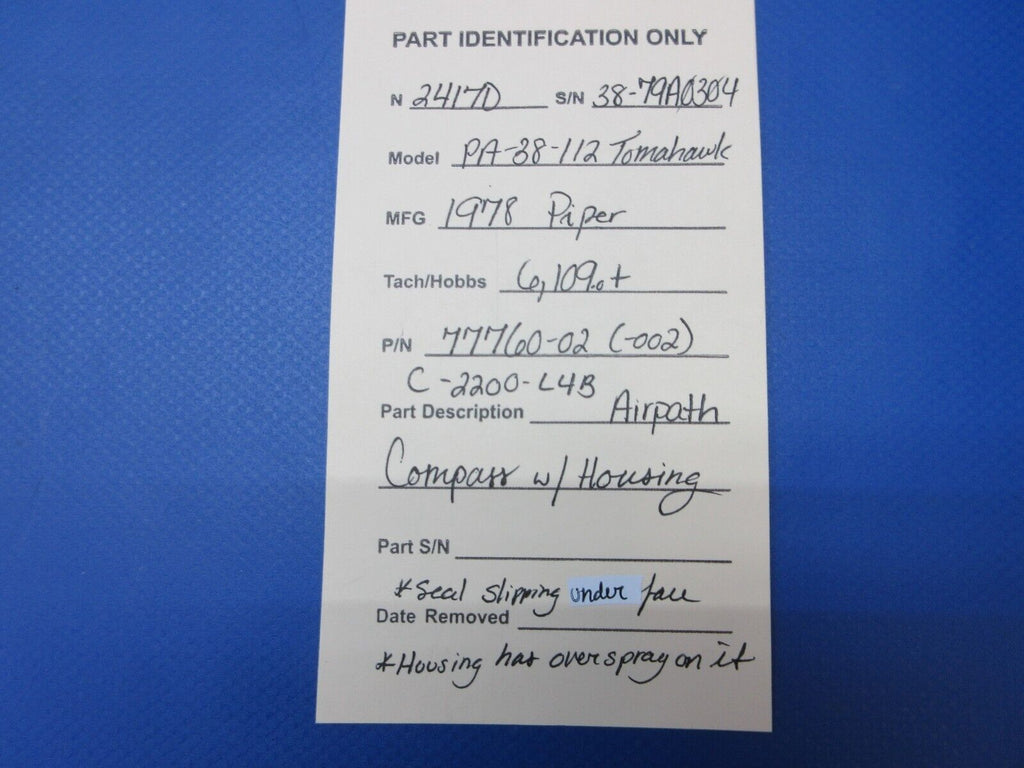 PART IDENTIFICATION ONLY
N 2417D S/N 38-79A0304
Model PA-38-112 Tomahawk
MFG 1978 Piper
Tach/Hobbs 6,109.0+
P/N 77760-02 (-002)
C-2200-L4B
Part Description Airpath
Compass w/ Housing
Part S/N
*Seal slipping under face
Date Removed
*Housing has overspray on it